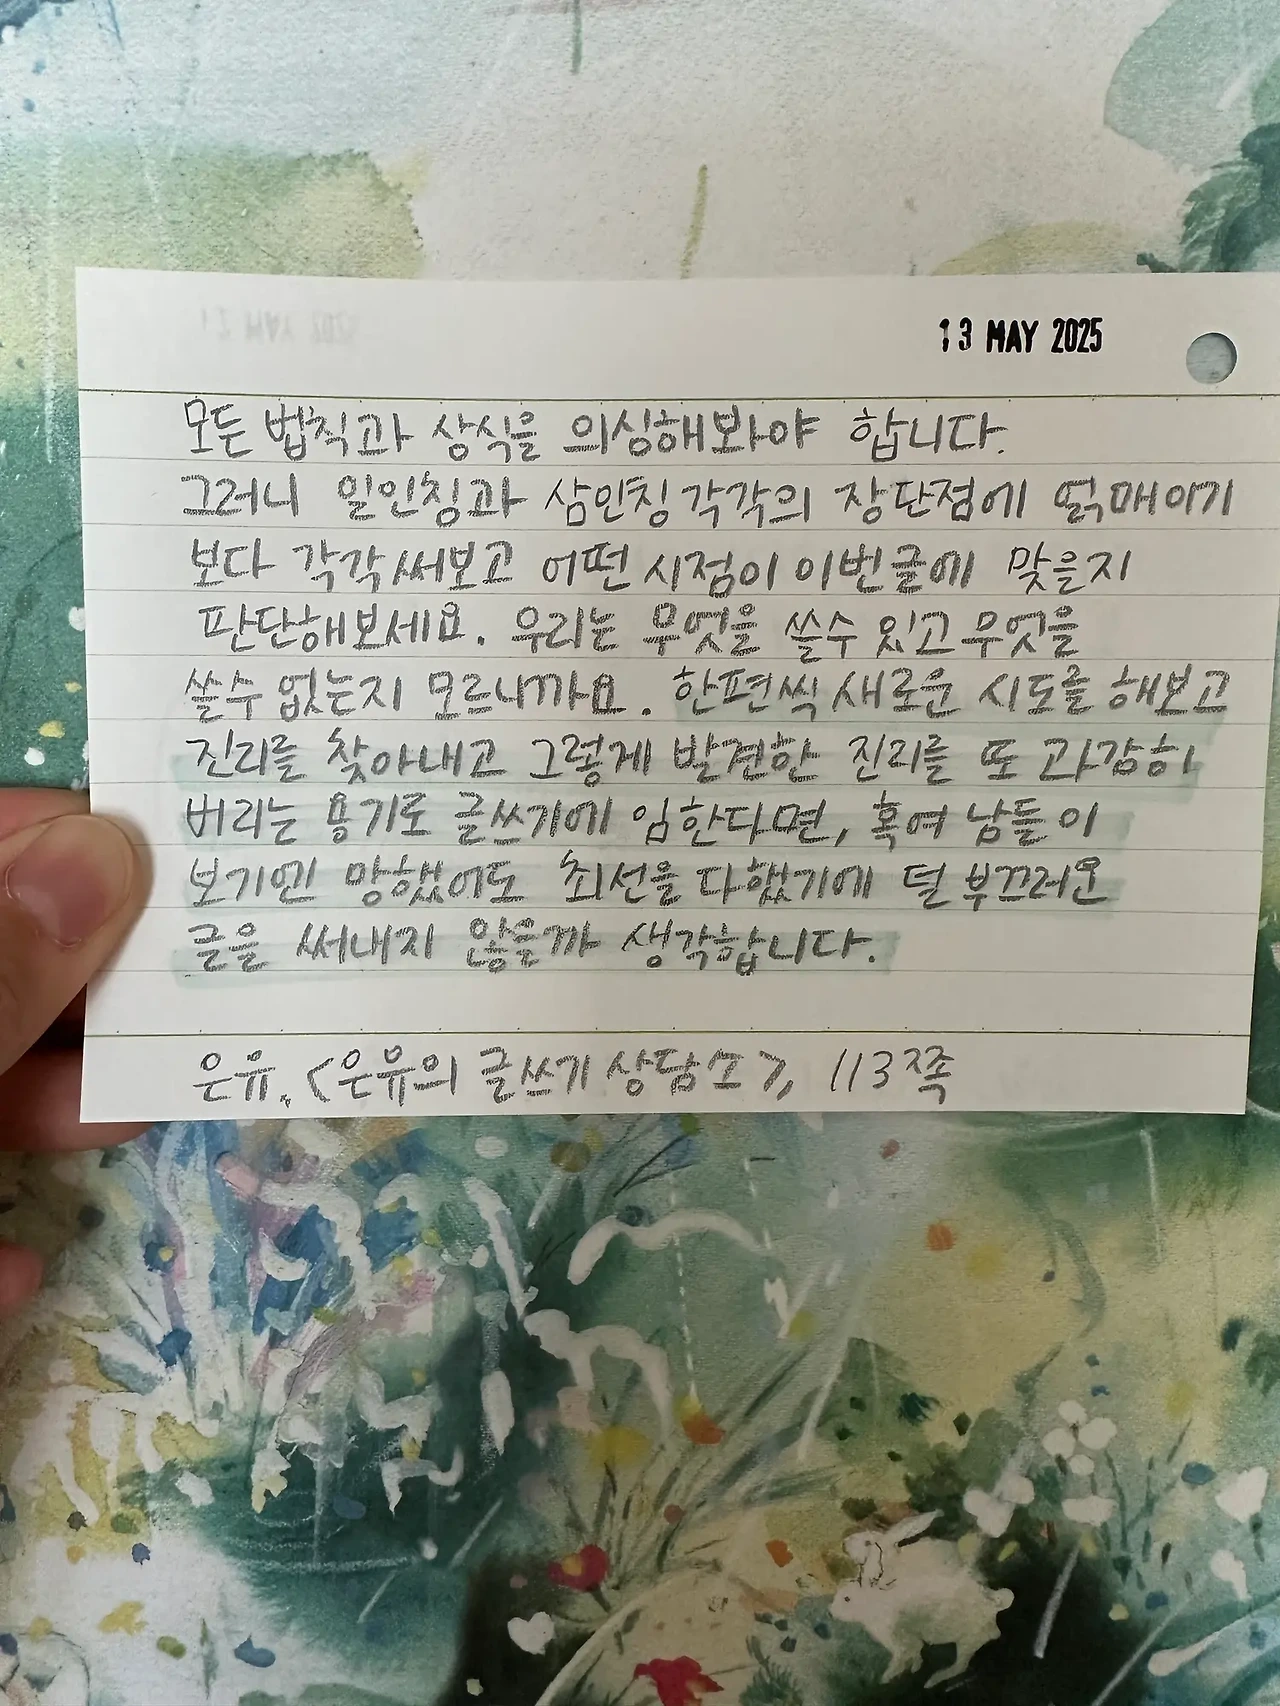 13 MAY 2025
모든 법칙과 상식을 의심해봐야 합니다.
그러니 일인칭과 삼인칭 각각의 장단점에 얽매이기
보다 각각 써보고 어떤 시점이 이번글에 맞을지
판단해보세요. 우리는 무엇을 쓸수 있고 무엇을
쓸수 없는지 모르니까요. 한편씩 새로운 시도를 해보고
진리를 찾아내고 그렇게 발견한 진리를 또 과감히
버리는 용기로 글쓰기에 임한다면, 혹여 남들이
보기엔 망했어도 최선을 다했기에 덜 부끄러운
글을 써내지 않을까 생각합니다.
은유, <은유의 글쓰기 상담소>, 113쪽